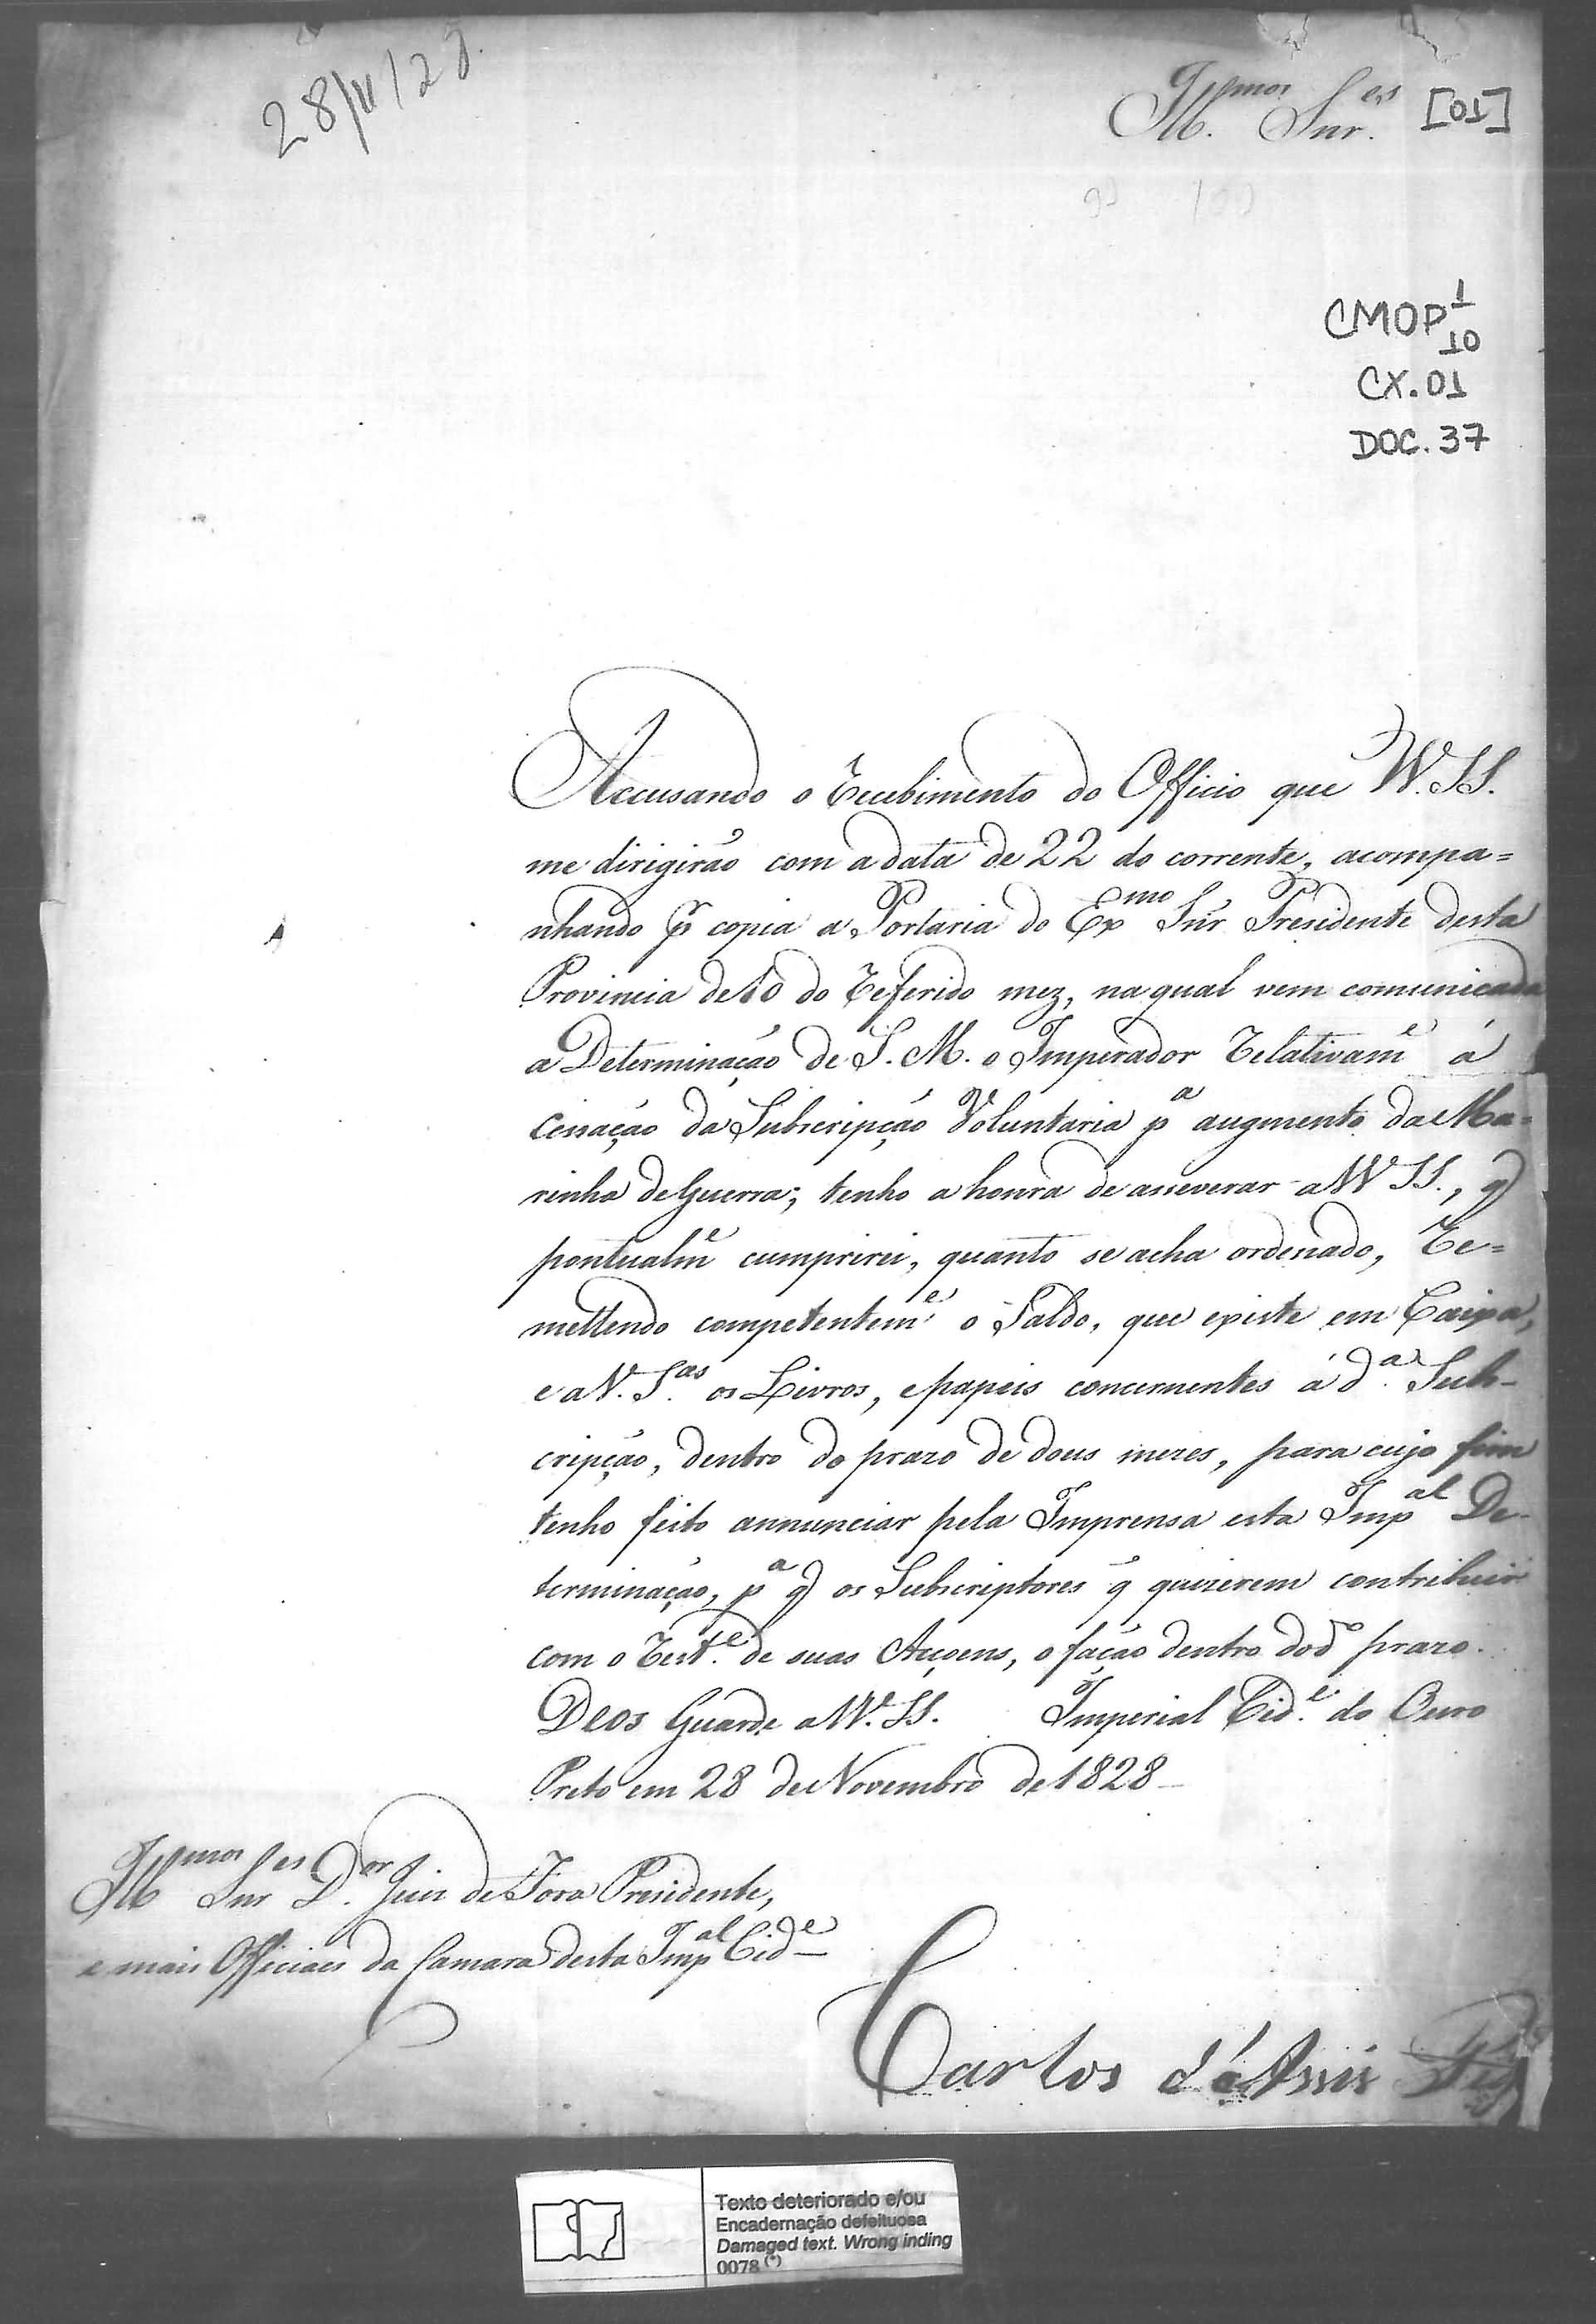 28/11/28.
Ill.mos Snr.es [01]
CMOP 1
10
CX.01
DOC. 37
Accusando o recebimento do Officio que VV. SS.
me dirigirão com a data de 22 do corrente, acompa=
nhando p copia a Portaria do Exmo Snr Presidente desta
Provincia de 10 do referido mez, na qual vem comunicada
a Determinação de S. M. o Imperador relativame á
Cessação da Subscripção Voluntaria pa augmento da Ma=
rinha de Guerra; tenho a honra de asseverar a VV SS., q
pontualme cumprirei, quanto se acha ordenado, re=
mettendo competenteme o Saldo, que existe em Caixa,
e a V. S.as os Livros, e papeis concernentes á d.a Sub-
cripção, dentro do prazo de dous mezes, para cujo fim
tenho feito annunciar pela Imprensa esta Impal De-
terminação, pa q os Subscriptores q quizerem contribuir
com o rest.e de suas Acçoens, o fação dentro do do prazo.
Deos Guarde a VV. SS. Imperial Cid.e do Ouro
Preto em 28 de Novembro de 1828
Illmos Snres D.or Juiz de Fora Presidente,
e mais Officiaes da Camara desta Impal Cide
Carlos d'Assis
Texto deteriorado e/ou
Encadernação defeituosa
Damaged text. Wrong inding
0078 (*)